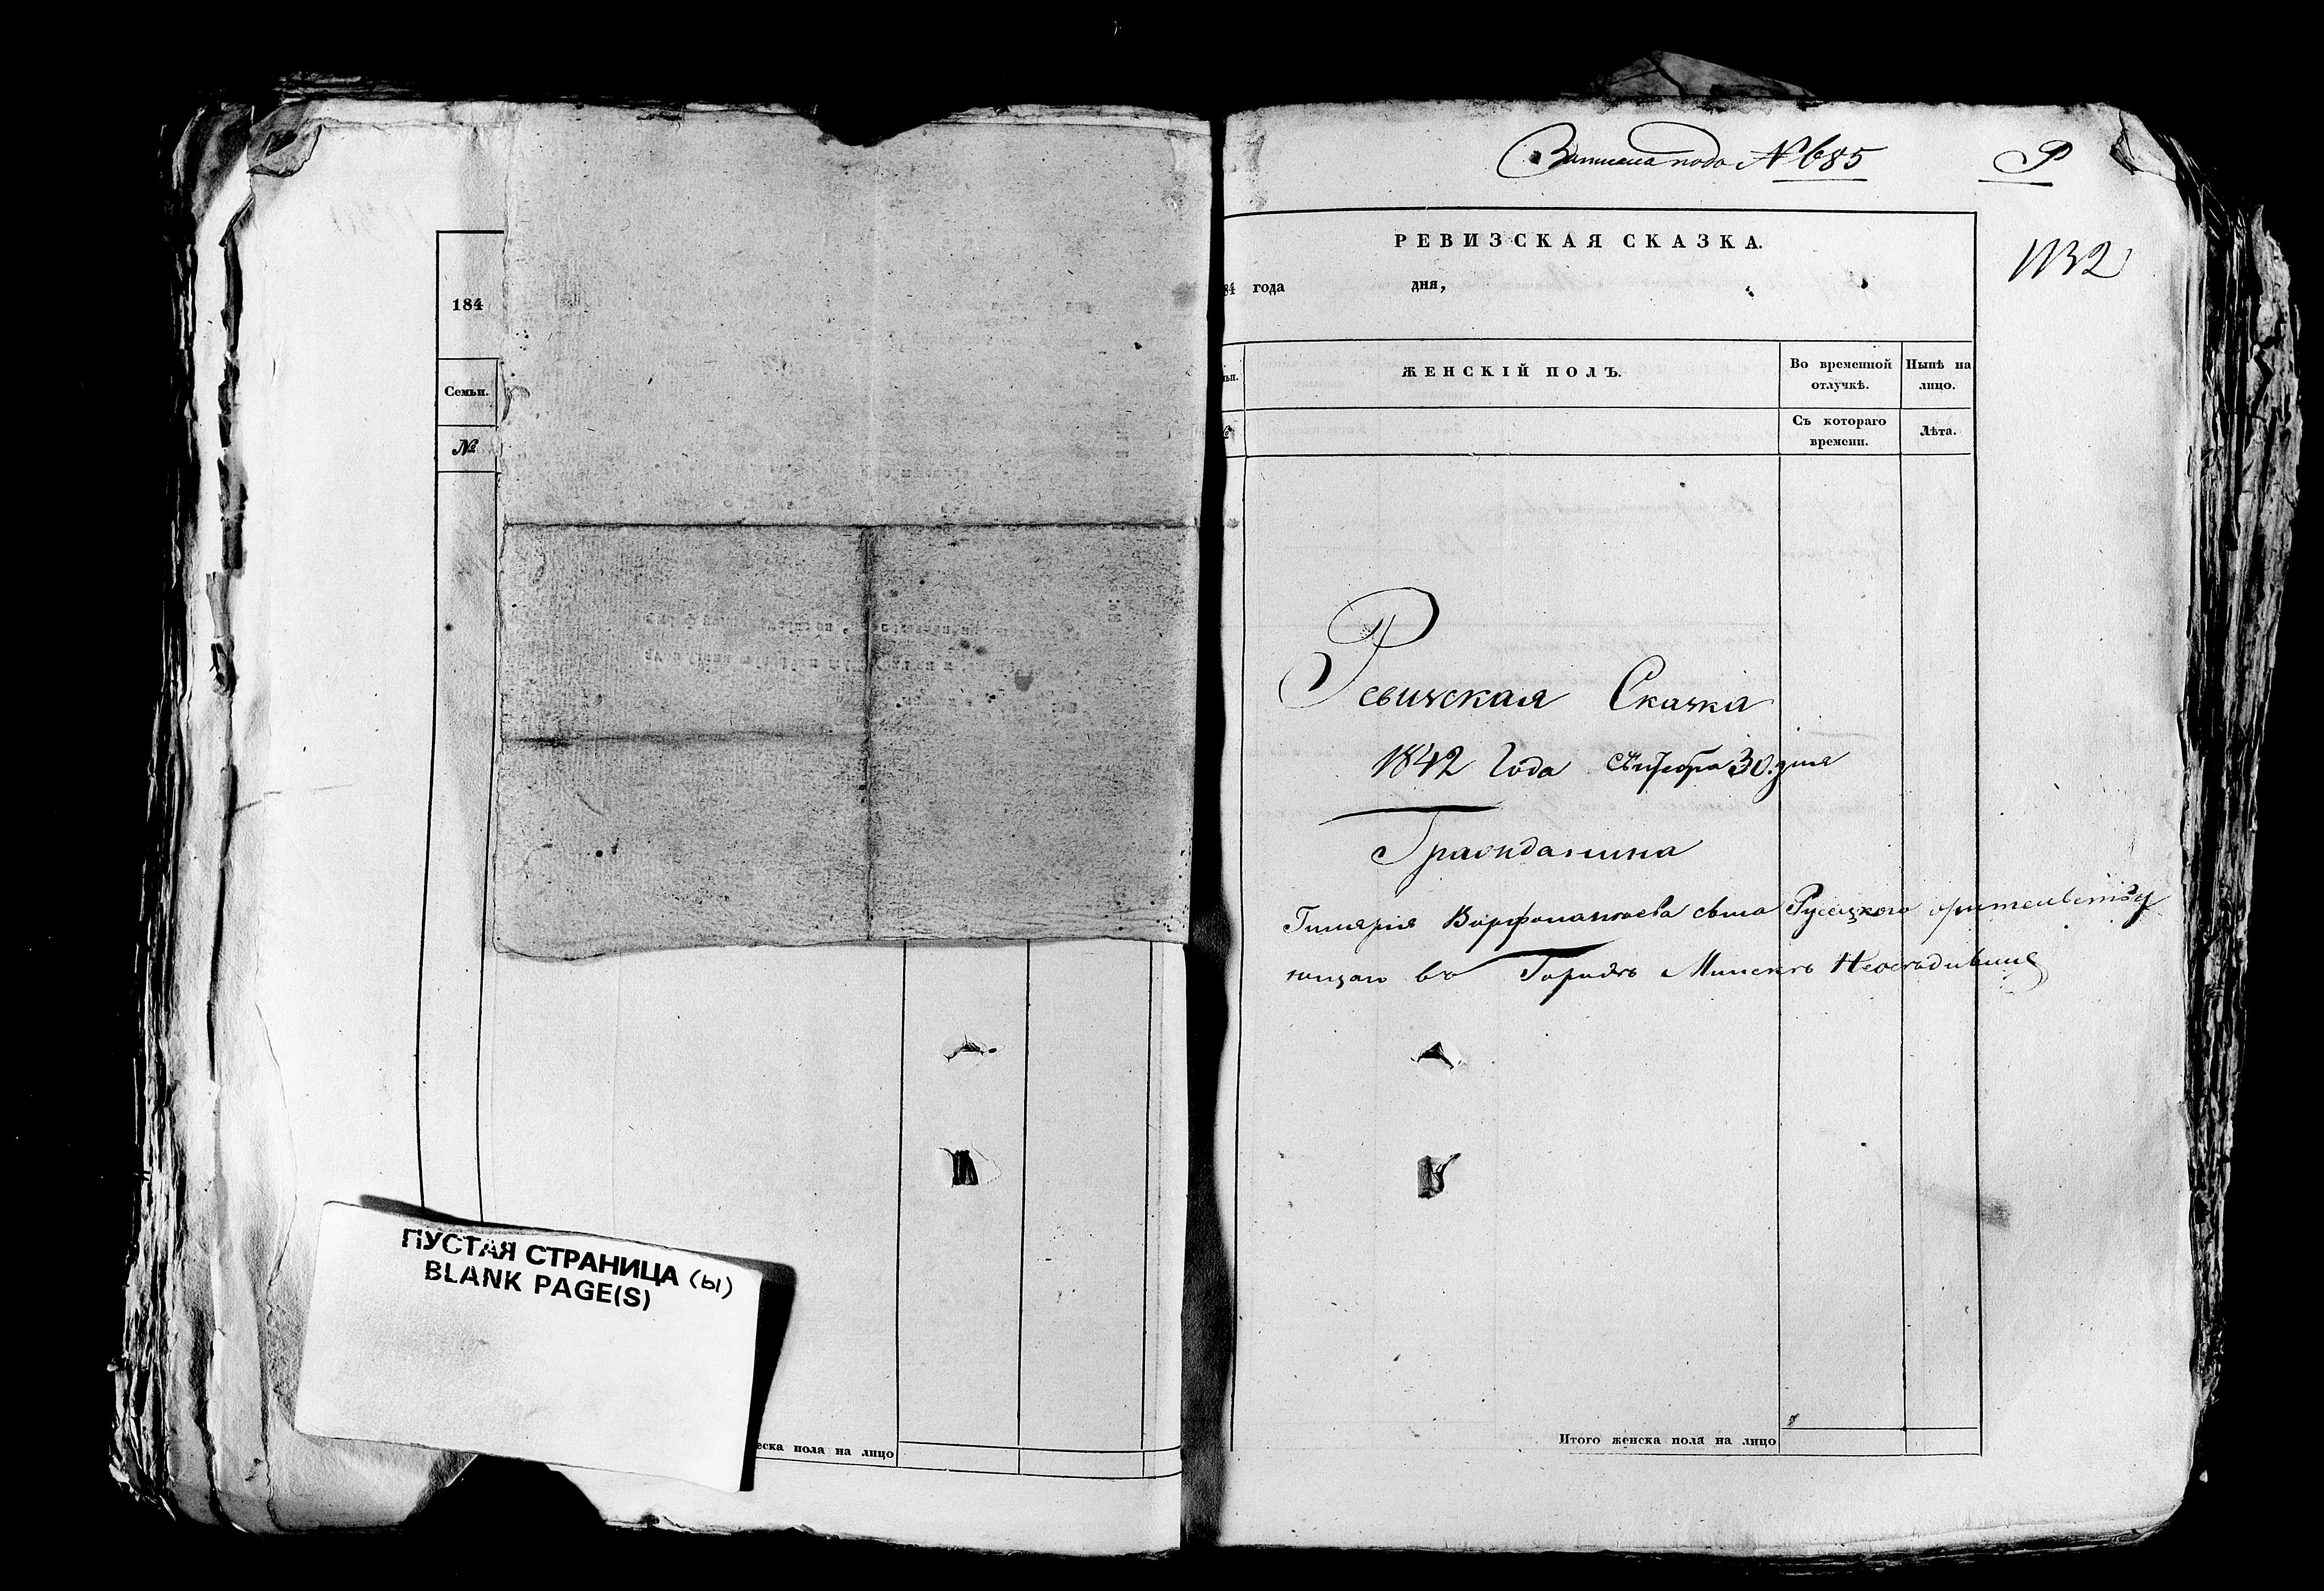 184
Семьи.
№
ПУСТАЯ СТРАНИЦА (Ы)
BLANK PAGE(S)
еска пола на лицо
Записана подъ № 685
Р
1132
РЕВИЗСКАЯ СКАЗКА.
84 года дня,
ЖЕНСКІЙ ПОЛЪ.
Во временной отлучкѣ.
Нынѣ на лицо.
Съ котораго времени.
Лѣта.
Ревизская Сказка
1842 Года Октября 30 дня
Гражданина
Гиляріа Варфоламѣева сына Русецкого жительству
ющаго въ Городѣ Минскѣ
Итого женска пола на лицо